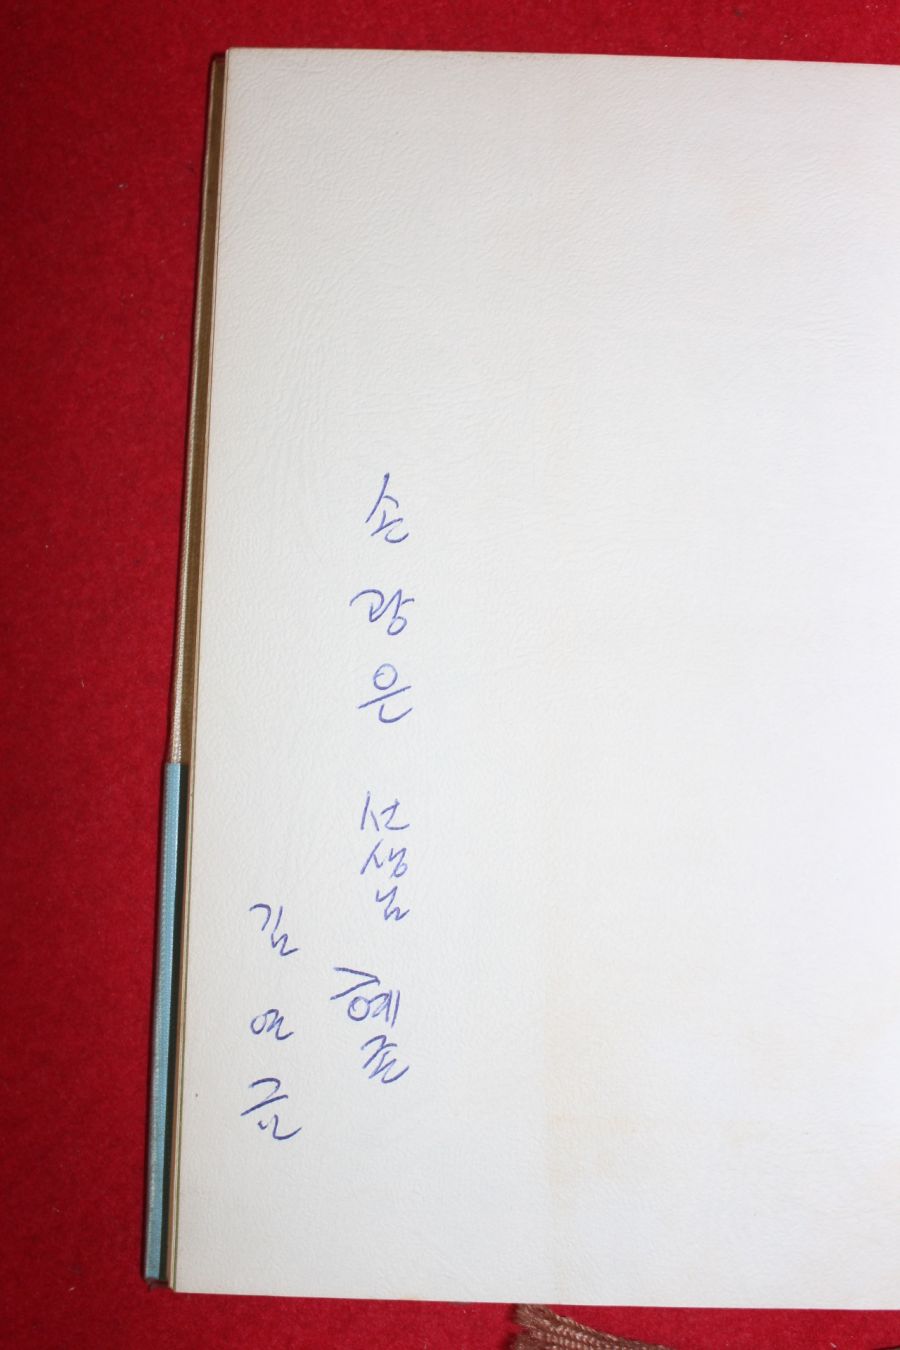 손 광 은 선생님 혜존
김 연 균